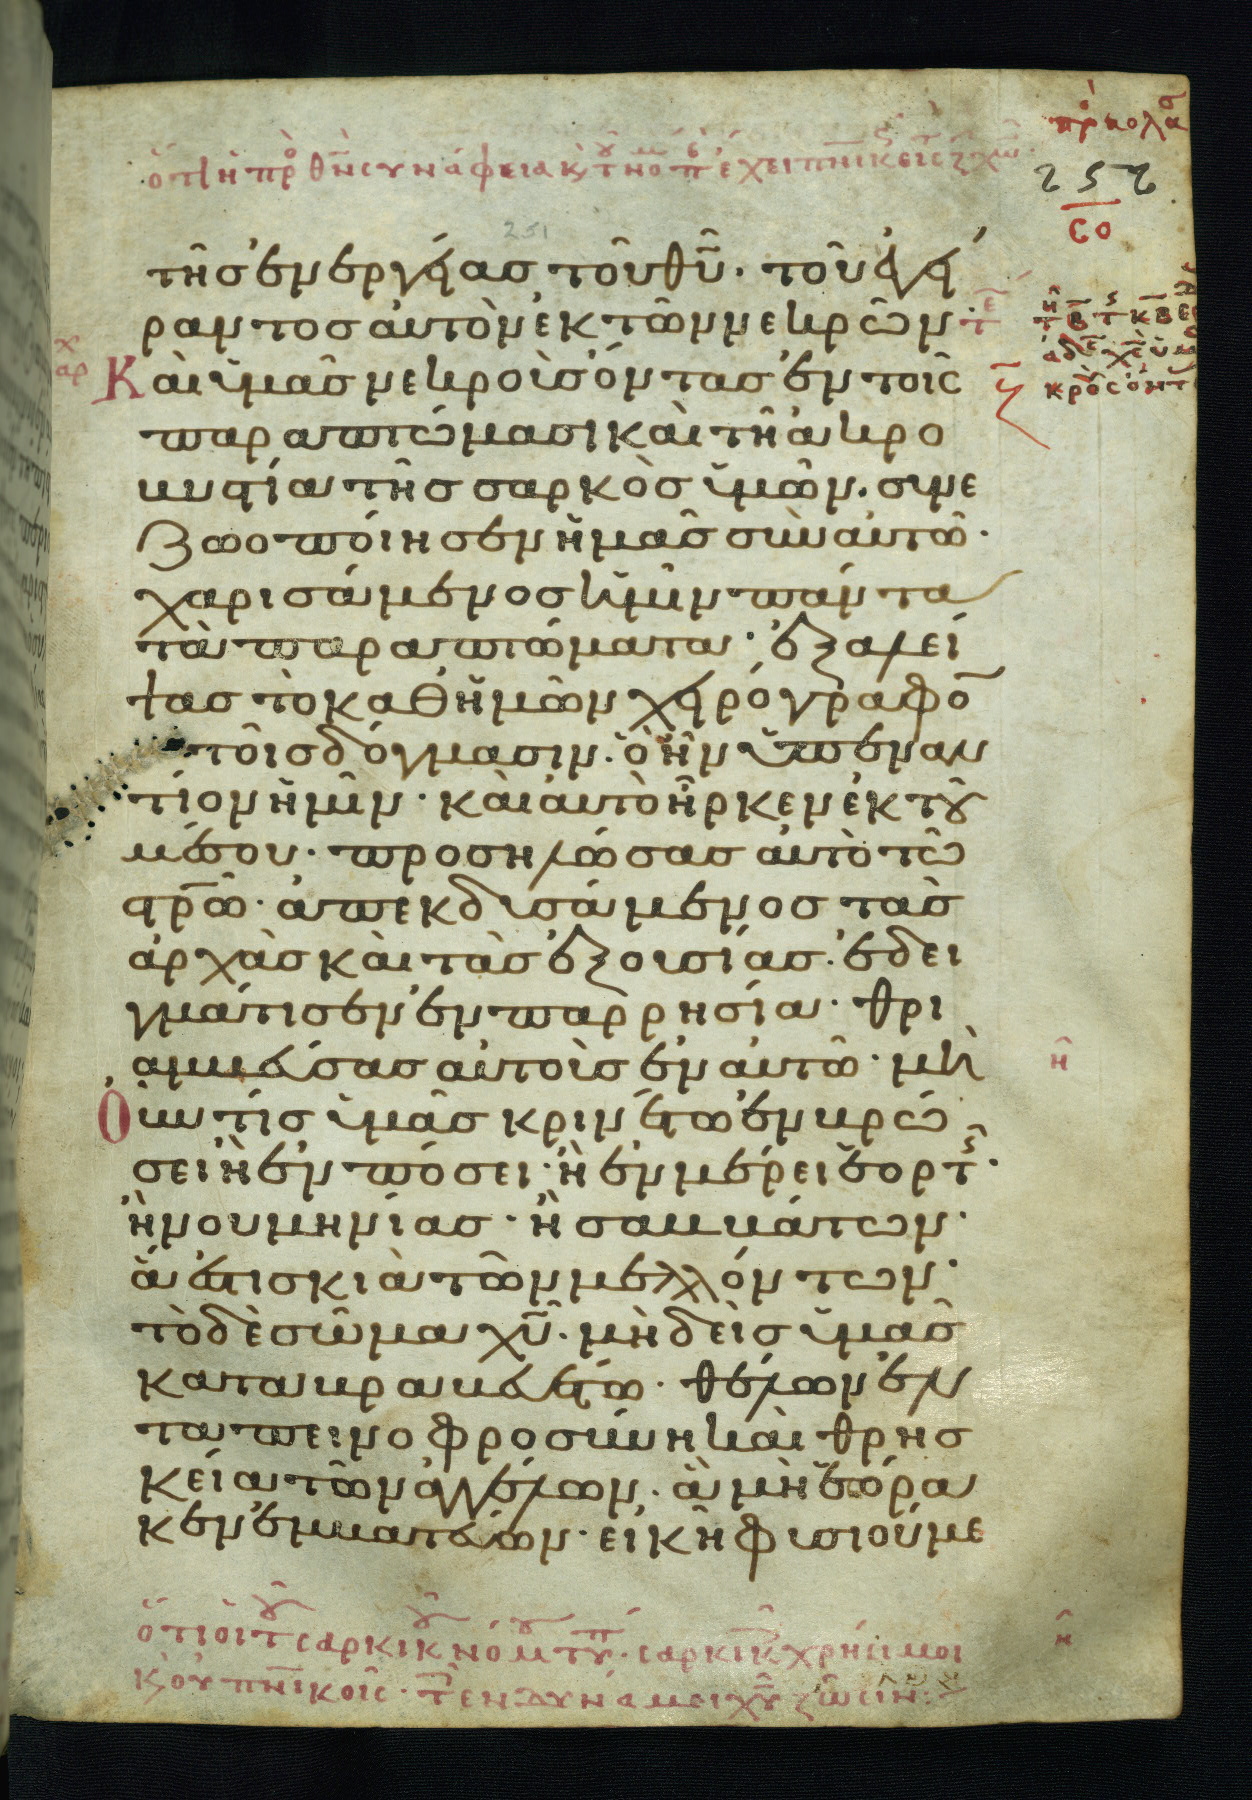 πρ κολα
ὅτι ἡ πρ θν συνάφεια κ τ νο π ἔχει πνικ εἰς
252
CO
251
τῆσ ἐνεργείασ τοῦ θῡ· τοῦ ἐγεί
ραντοσ αὐτὸν ἐκ τῶν νεκρῶν·
Καὶ ὑμᾶσ νεκροὺσ ὄντασ ἐν τοῖς
παραπτώμασι καὶ τῆ ἀκρο
βυστία τῆσ σαρκὸσ ὑμῶν. συνε
ζωοποίησεν ἡμᾶσ σὺν αὐτῶ·
χαρισάμενοσ ἡμῖν πάντα
τὰ παραπτώματα· ἐξαλεί
ψασ τὸ καθ ἡμῶν χειρόγραφο̄
τοῖσ δόγμασιν. ὃ ἦν ὑπεναν
τίον ἡμῖν· καὶ αὐτὸ ἦρκεν ἐκ τοῦ
μέσου· προσηλώσασ αὐτὸ τῶ
στρ̄ῶ· ἀπεκδυσάμενοσ τὰσ
ἀρχὰσ καὶ τὰσ ἐξουσίασ. ἐδει
γμάτισεν ἐν παρρησία· θρι
αμβεύσασ αὐτοὺσ ἐν αὐτῶ· μὴ
Οὖν τίσ ὑμᾶσ κρινέτω ἐν βρώ
σει ἢ ἐν πόσει· ἢ ἐν μέρει ἑορτῆς·
ἢ νουμηνίασ· ἢ σαββάτων·
ἅ ἐστι σκιὰ τῶν μελλόντων·
τὸ δὲ σῶμα χῡ· μηδεὶσ ὑμᾶσ
καταβραβευέτω· θέλων ἐν
ταπεινοφροσύνη καὶ θρησ
κεία τῶν ἀγγέλων· ἃ μὴ ἑόρα
κεν ἐμβατεύων· εἰκῆ φυσιούμε
ὅτι οἱ τ σαρκικ νόμ τυπ· σαρκικ χρήσιμοι
κ οὐ πνικοῖς· τ ἐν δυνάμει χῡ ζῶσιν